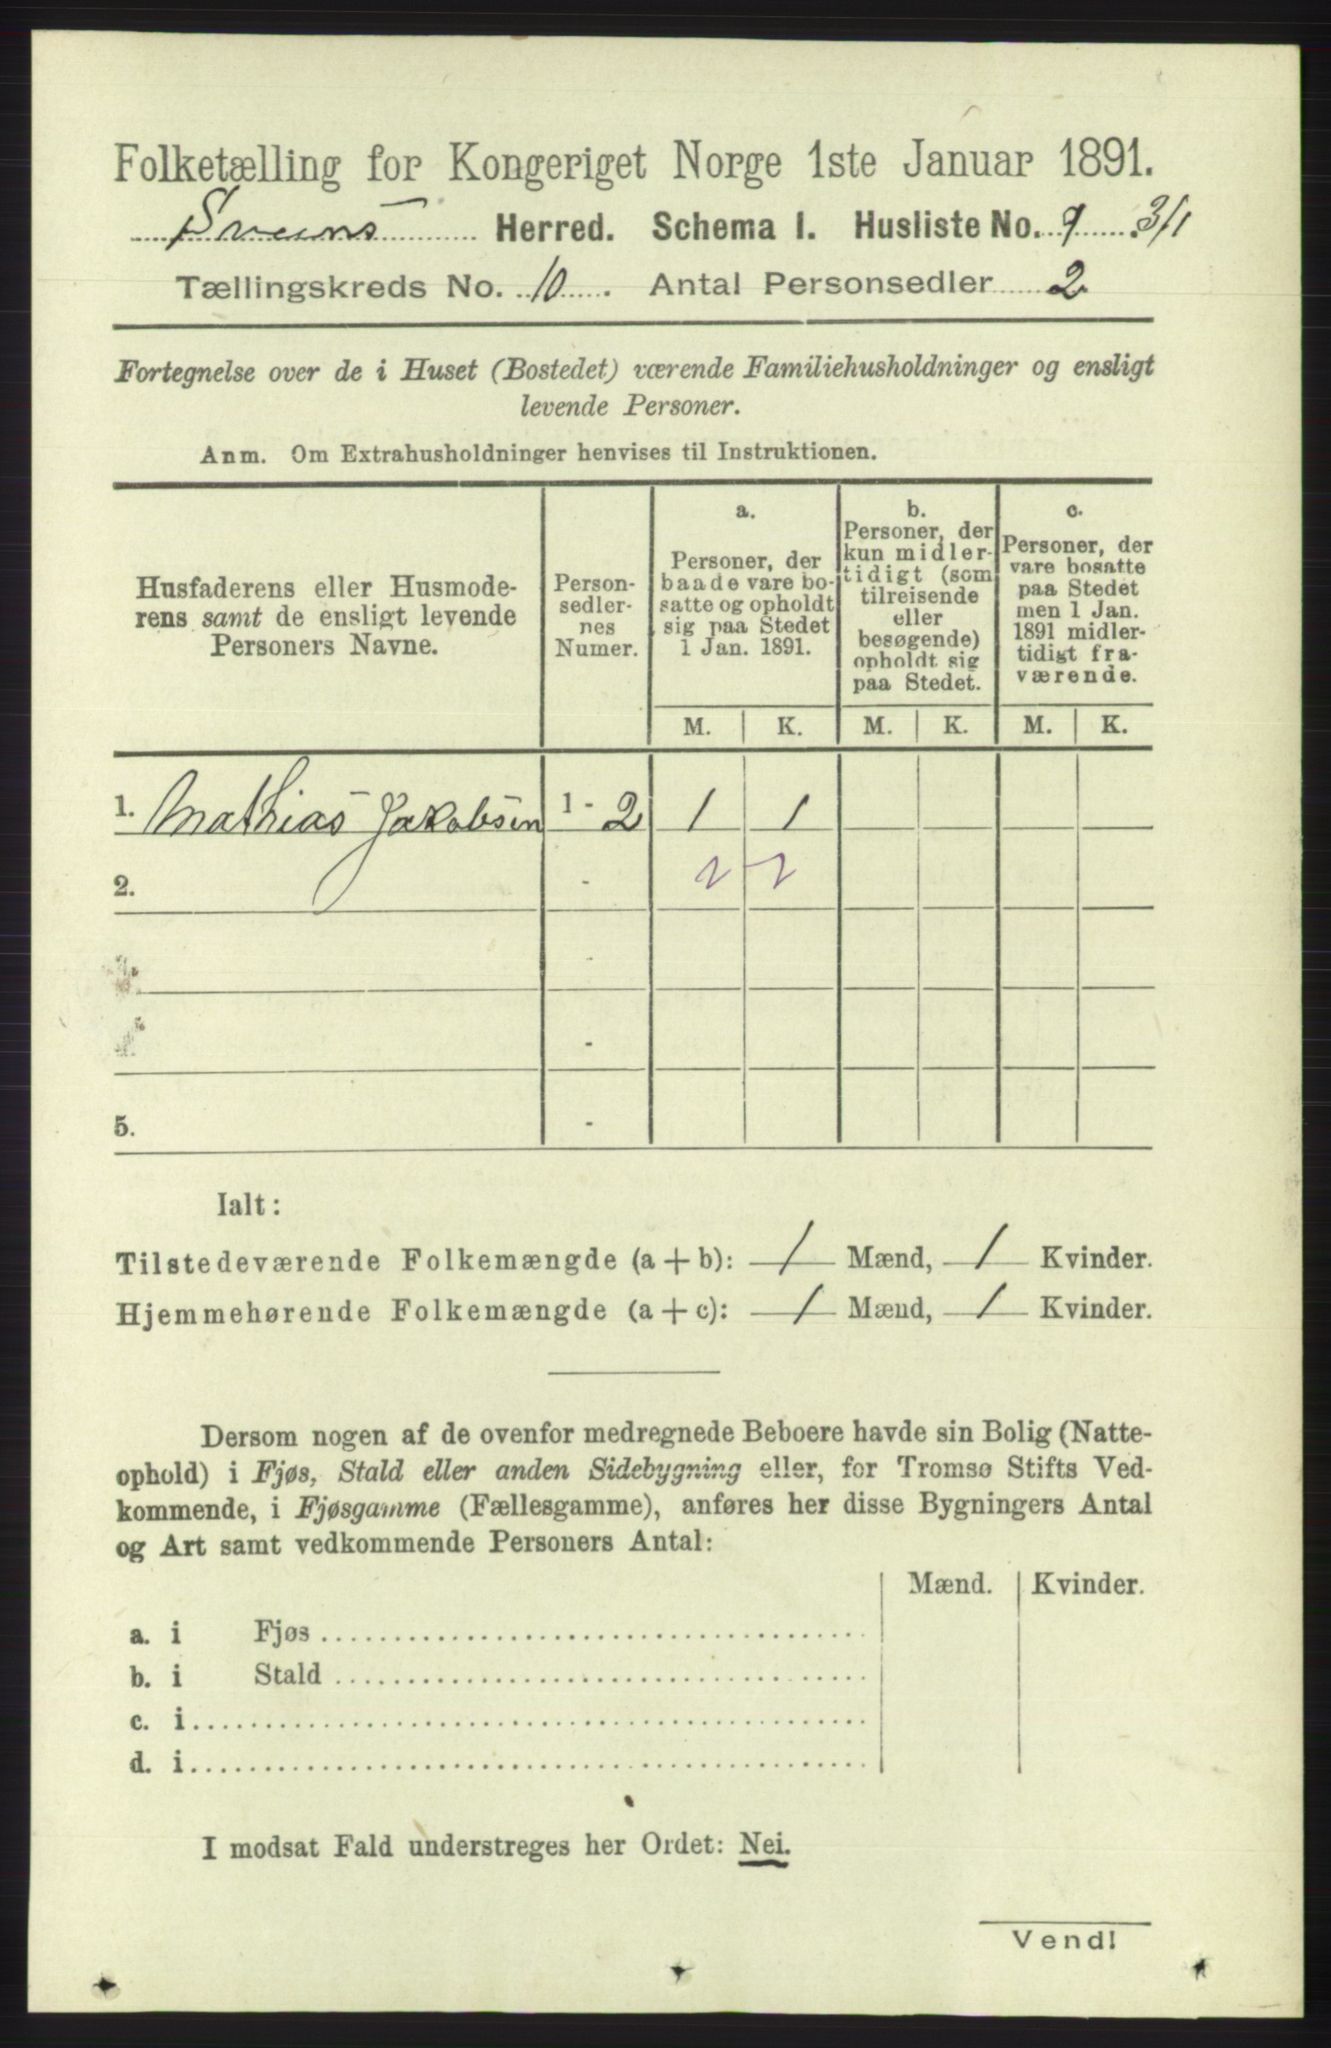 Folketælling for Kongeriget Norge 1ste Januar 1891.
Sveens Herred. Schema I. Husliste No. 9 3/1
Tællingskreds No. 10. Antal Personsedler 2
Fortegnelse over de i Huset (Bostedet) værende Familiehusholdninger og ensligt
levende Personer.
Anm. Om Extrahusholdninger henvises til Instruktionen.
Husfaderens eller Husmode-
rens samt de ensligt levende
Personers Navne.
Person-
sedler-
nes
Numer.
a.
Personer, der
baade vare bo-
satte og opholdt
sig paa Stedet
1 Jan. 1891.
b.
Personer, der
kun midler-
tidigt (som
tilreisende
eller
besøgende)
opholdt sig
paa Stedet.
c.
Personer, der
vare bosatte
paa Stedet
men 1 Jan.
1891 midler-
tidigt fra-
værende.
M. K. M. K. M. K.
1. Mathias Jakobsen 1 - 2 1 1
2. -
-
-
5. -
Ialt:
Tilstedeværende Folkemængde (a + b): 1 Mænd, 1 Kvinder.
Hjemmehørende Folkemængde (a + c): 1 Mænd, 1 Kvinder.
Dersom nogen af de ovenfor medregnede Beboere havde sin Bolig (Natte-
ophold) i Fjøs, Stald eller anden Sidebygning eller, for Tromsø Stifts Ved-
kommende, i Fjøsgamme (Fællesgamme), anføres her disse Bygningers Antal
og Art samt vedkommende Personers Antal:
Mænd. Kvinder.
a. i Fjøs
b. i Stald
c. i
d. i
I modsat Fald understreges her Ordet: Nei.
Vend!